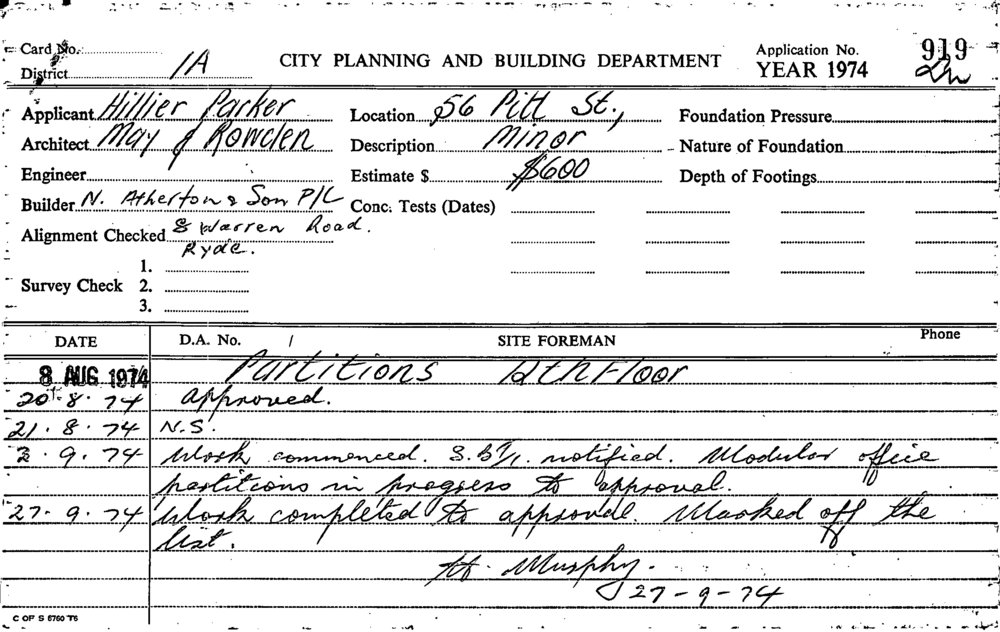 Card No.
District 1A
CITY PLANNING AND BUILDING DEPARTMENT
Application No. 919
YEAR 1974
Applicant Hillier Parker
Location 56 Pitt St.,
Foundation Pressure
Architect May & Rowden
Description Minor
Nature of Foundation
Engineer
Estimate $ $600
Depth of Footings
Builder N. Atherton & Son P/L
Conc. Tests (Dates)
Alignment Checked 8 Warren Road.
Ryde.
1.
Survey Check 2.
3.
DATE D.A. No. / SITE FOREMAN Phone
8 AUG 1974 Partitions 12th Floor
20.8.74 approved.
21.8.74 N.S.
3.9.74 Work commenced. notified. Modular office
partitions in progress to approval.
27.9.74 Work completed to approval. Marked off the
list.
Murphy.
27-9-74
C OF S 5760 T5